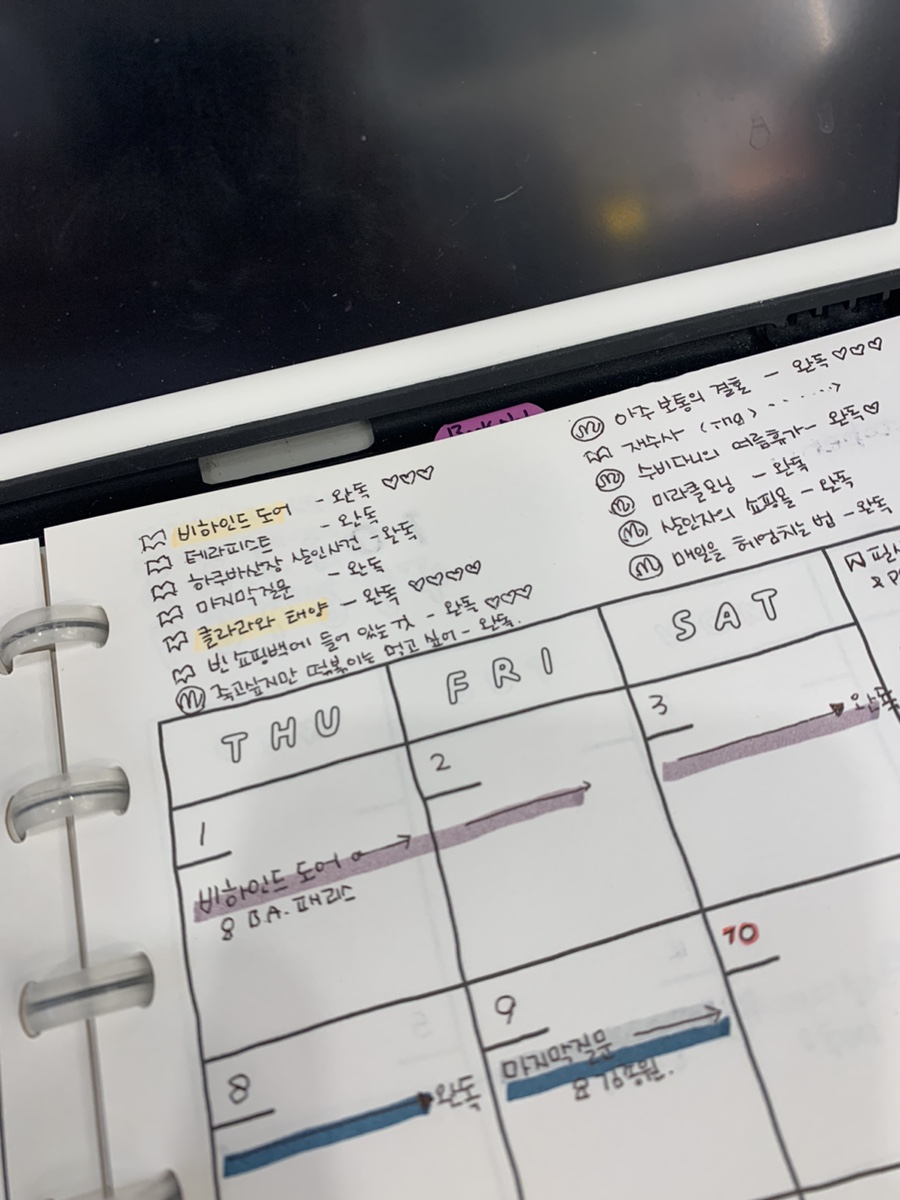 비하인드 도어 - 완독 ♡♡♡
테라피스트 - 완독
하쿠바산장 살인사건 - 완독
마지막질문 - 완독
클라라와 태양 - 완독 ♡♡♡♡
빈 쇼핑백에 들어 있는 것 - 완독 ♡♡♡
죽고싶지만 떡볶이는 먹고 싶어 - 완독.
ⓜ 아주 보통의 결혼 - 완독 ♡♡♡
재수사 ( ) ······>
ⓜ 수비다니의 여름휴가 - 완독♡
ⓜ 미라클모닝 - 완독
ⓜ 살인자의 쇼핑몰 - 완독
ⓜ 매일을 헤엄치는 법 - 완독
THU FRI SAT
1 2 3
완독
비하인드 도어
B.A. 패리스
8 9 10
완독
마지막질문
김종원.